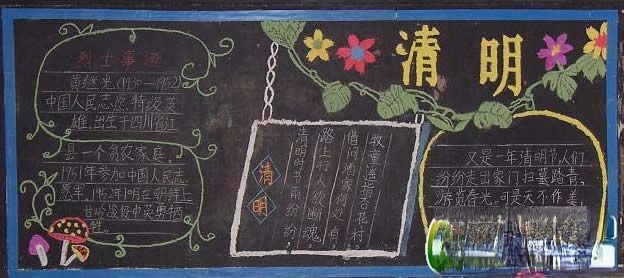 清明
烈士事迹
黄继光(1930—1952)
中国人民志愿特级英
雄.出生于四川省江
县一个贫农家庭,
1951年参加中国人民志
愿军,1952年10月在朝鲜上
甘岭战役中英勇牺
牲。
清明
清明时节雨纷纷,
路上行人欲断魂
借问酒家何处有,
牧童遥指杏花村
又是一年清明节,人们
纷纷走出家门扫墓踏青,
游览春光.可是天不作美,